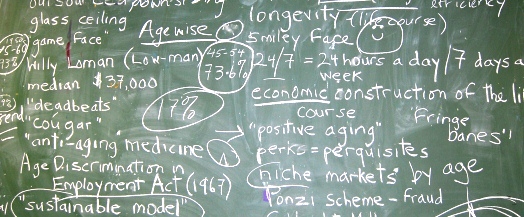 longevity (life course)
efficiency
glass ceiling
Agewise
"game face"
Smiley Face
45-54
73.6%
Willy Loman (Low-man)
24/7 = 24 hours a day/7 days a
week
median $37,000
economic construction of the
course
"deadbeats"
17%
"Fringe
banes"
"cougar"
"positive aging"
= "anti-aging medicine
perks = perquisites
Age Discrimination in
Employment Act (1967)
niche markets by age
"sustainable model"
Ponzi Scheme - fraud